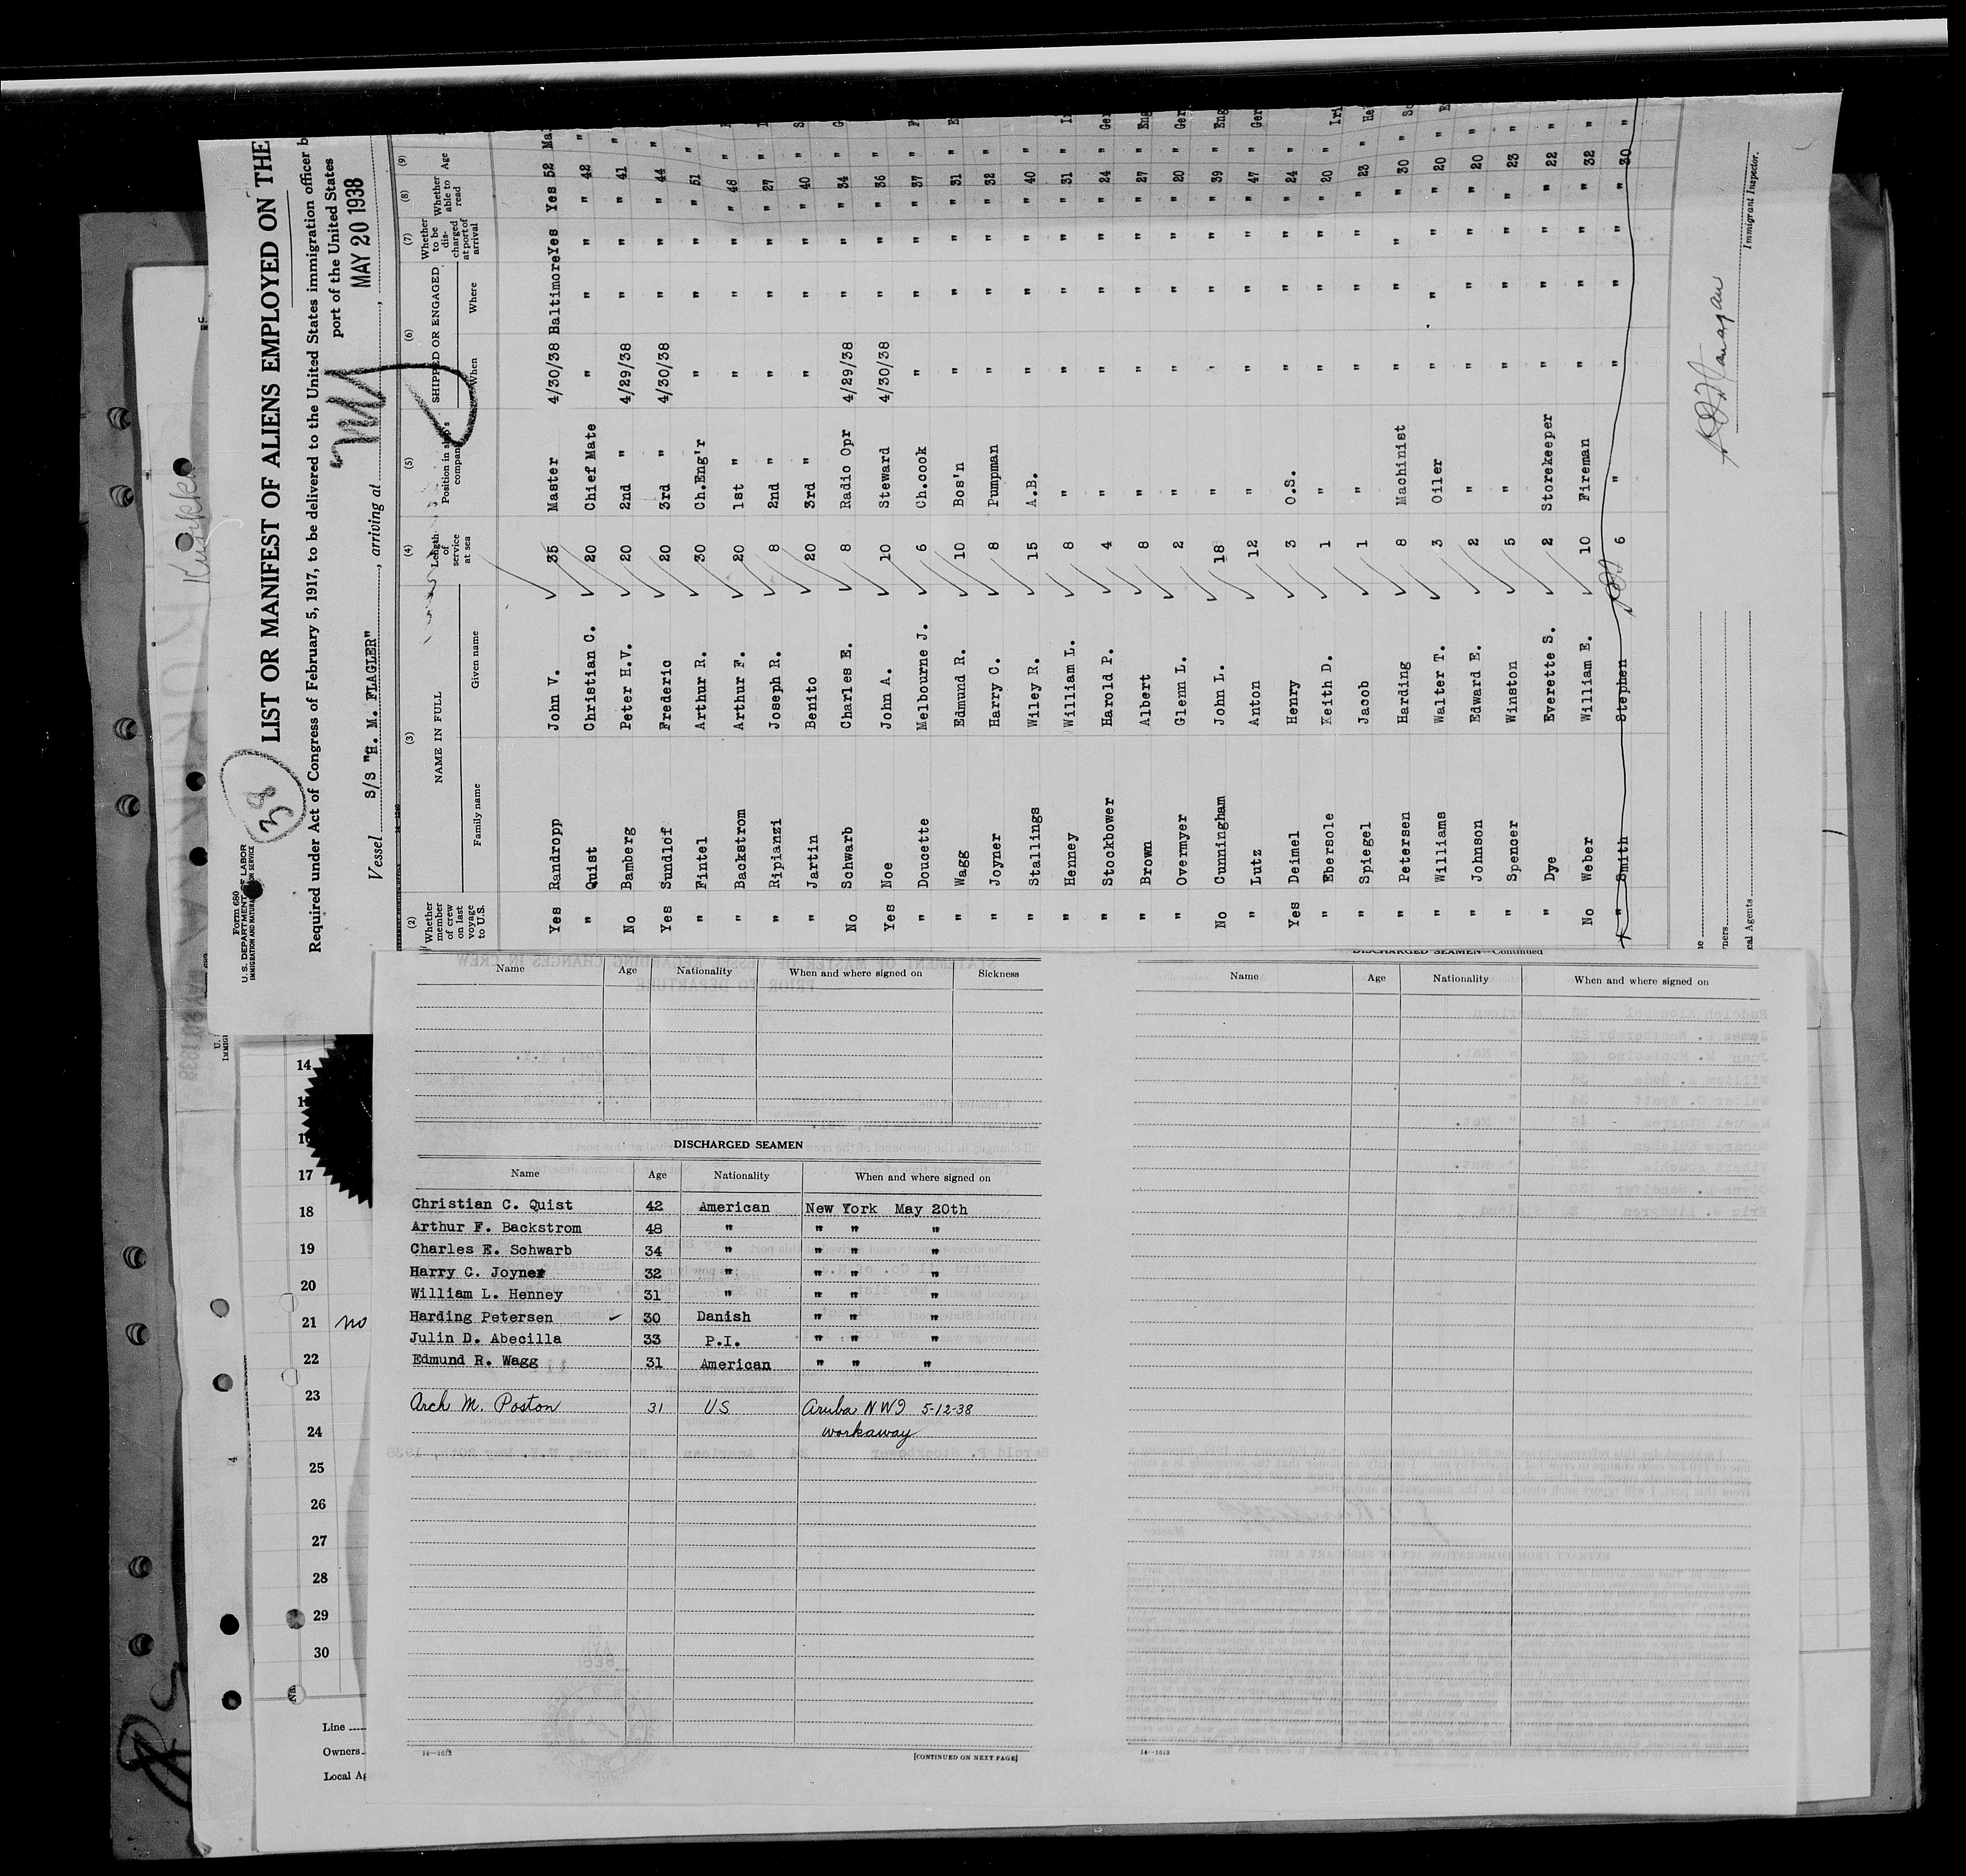 Form 680
U.S. DEPARTMENT OF LABOR
IMMIGRATION AND NATURALIZATION SERVICE
38
LIST OR MANIFEST OF ALIENS EMPLOYED ON THE
Required under Act of Congress of February 5, 1917, to be delivered to the United States immigration officer b
port of the United States
Vessel S/S "H. M. FLAGLER", arriving at MAY 20 1938,
(2) (3) (4) (5) (6) (7) (8) (9)
Whether member of crew on last voyage to U.S. NAME IN FULL Family name Given name Length of service at sea Position in ship's company SHIPPED OR ENGAGED When Where Whether to be discharged at port of arrival Whether able to read Age
Yes Randropp John V. 35 Master 4/30/38 Baltimore Yes Yes 52 Mal
" Quist Christian C. 20 Chief Mate " " " " 42 "
No Bamberg Peter H.V. 20 2nd " 4/29/38 " " " 41 "
Yes Sundlof Frederic 20 3rd " 4/30/38 " " " 44 "
" Fintel Arthur R. 30 Ch.Eng'r " " " " 51 "
" Backstrom Arthur F. 20 1st " " " " " 48 "
" Ripianzi Joseph R. 8 2nd " " " " " 27 "
" Jartin Benito 20 3rd " " " " " 40 " S
No Schwarb Charles E. 8 Radio Opr 4/29/38 " " " 34 " G
Yes Noe John A. 10 Steward 4/30/38 " " " 36 "
" Doucette Melbourne J. 6 Ch.cook " " " " 37 " F
" Wagg Edmund R. 10 Bos'n " " " " 31 " E
" Joyner Harry C. 8 Pumpman " " " " 32 "
" Stallings Wiley R. 15 A.B. " " " " 40 "
" Henney William L. 8 " " " " " 31 " I
" Stockbower Harold P. 4 " " " " " 24 " Ger
" Brown Albert 8 " " " " " 27 " Eng
" Overmyer Glenn L. 2 " " " " " 20 " Ger
No Cunningham John L. 18 " " " " " 39 " Eng
" Lutz Anton 12 " " " " " 47 " Ger
Yes Deimel Henry 3 O.S. " " " " 24 "
" Ebersole Keith D. 1 " " " " " 20 " Iri
" Spiegel Jacob 1 " " " " " 23 " He
" Petersen Harding 8 Machinist " " " " 30 " Sc
" Williams Walter T. 3 Oiler " " " " 20 " E
" Johnson Edward E. 2 " " " " " 20 "
" Spencer Winston 5 " " " " " 23 "
" Dye Everette S. 2 Storekeeper " " " " 22 "
No Weber William E. 10 Fireman " " " " 32 "
" Smith Stephen 6 " " " " " 30 "
Immigrant Inspector.
ners
cal Agents
Name Age Nationality When and where signed on Sickness
DISCHARGED SEAMEN
Name Age Nationality When and where signed on
Christian C. Quist 42 American New York May 20th
Arthur F. Backstrom 48 " " " "
Charles E. Schwarb 34 " " " "
Harry C. Joyner 32 " " " "
William L. Henney 31 " " " "
Harding Petersen 30 Danish " " "
Julin D. Abecilla 33 P.I. " " "
Edmund R. Wagg 31 American " " "
Arch M. Poston 31 US Aruba NWI 5-12-38
workaway
14—1613
[CONTINUED ON NEXT PAGE]
DISCHARGED SEAMEN—Continued
Name Age Nationality When and where signed on
14—1613
14
17
18
19
20
21 no
22
23
24
25
26
27
28
29
30
Line
Owners
Local Ag